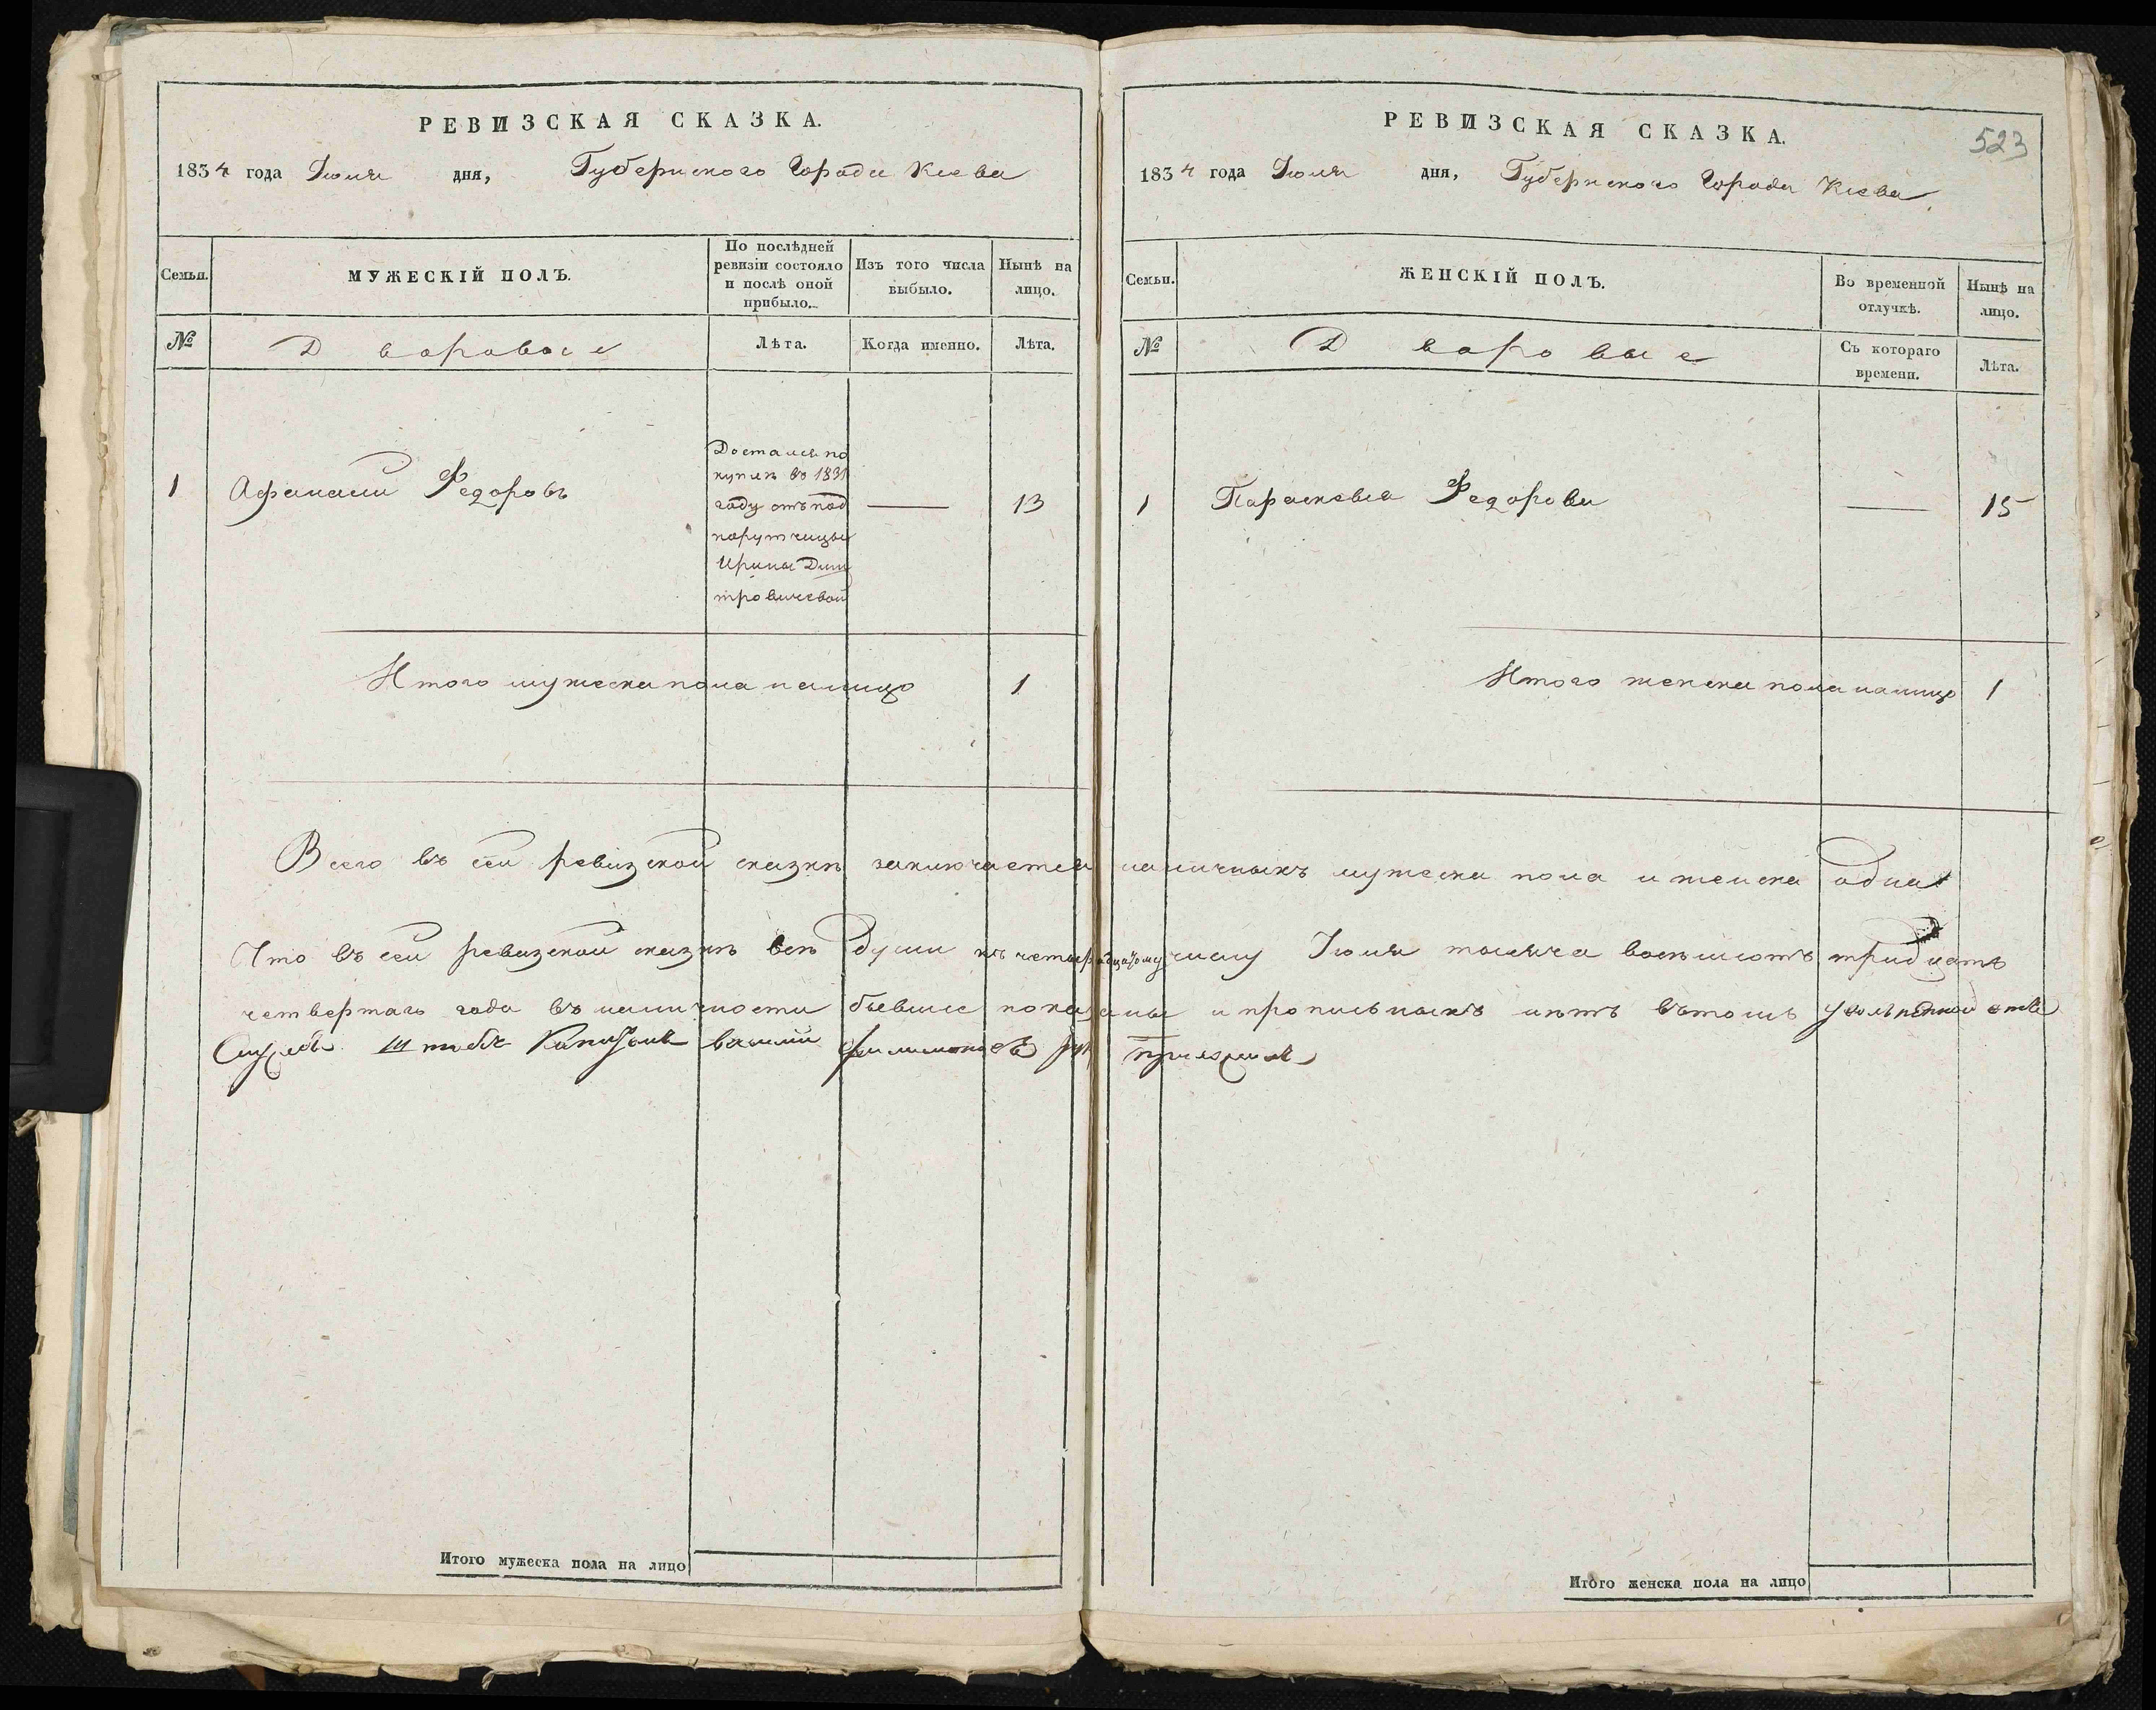 РЕВИЗСКАЯ СКАЗКА.
1834 года Июля дня, Губернского Города Киева
Семьи.
МУЖЕСКІЙ ПОЛЪ.
По послѣдней ревизіи состояло и послѣ оной прибыло.
Изъ того числа выбыло.
Нынѣ на лицо.
№
Дворовые
Лѣта.
Когда именно.
Лѣта.
1
Афанасий Федоровъ
Достался по
купкѣ въ 1831
году отъ под
порутчицы
Ирины Дми
тровичевой
—
13
Итого мужеска пола налицо 1
РЕВИЗСКАЯ СКАЗКА.
523
1834 года Июля дня, Губернского Города Киева
Семьи.
ЖЕНСКІЙ ПОЛЪ.
Во временной отлучкѣ.
Нынѣ на лицо.
№
Дворовые
Съ котораго времени.
Лѣта.
1
Параскевиа Федорова
—
15
Итого женска пола налицо 1
Всего въ сей ревизской сказкѣ заключается наличныхъ мужеска пола и женска одна
Что въ сей ревизской сказкѣ всѣ души къ числу Июля тысяча восемьсотъ тридцать
четвертаго года въ наличности бывшие показаны и прописныхъ нѣтъ въ томъ
Штабъ Капитанъ
Итого мужеска пола на лицо
Итого женска пола на лицо